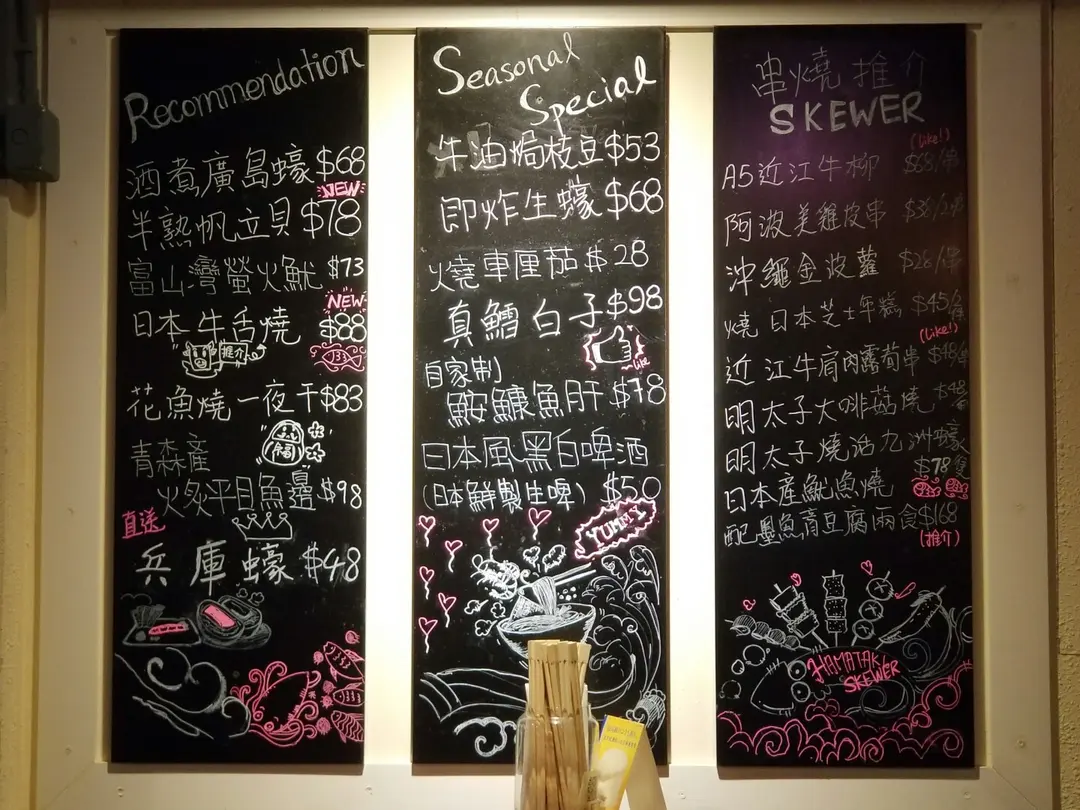 Recommendation
酒煮廣島蠔 $68
NEW
半熟帆立貝 $78
富山灣螢火魷 $73
NEW
日本牛舌燒 $88
推介
花魚燒一夜干 $83
青森產
火炙平目魚邊 $98
直送
兵庫蠔 $48
Seasonal
Special
牛油焗枝豆 $53
即炸生蠔 $68
燒車厘茄 $28
真鱈白子 $98
like
自家制
鮟鱇魚肝 $78
日本風黑白啤酒
(日本鮮製生啤) $50
YUMMY
串燒推介
SKEWER
(Like!)
A5近江牛柳 $68/串
阿波美雞皮串 $38/
沖繩金波蘿 $28/串
燒日本芝士年糕 $45/
(Like!)
近江牛肩肉露荀串 $48/
明太子大啡菇燒 $48
明太子燒活九洲蠔
$78隻
日本產魷魚燒
配墨魚膏豆腐兩食 $168
(推介)
HAMATAKI
SKEWER